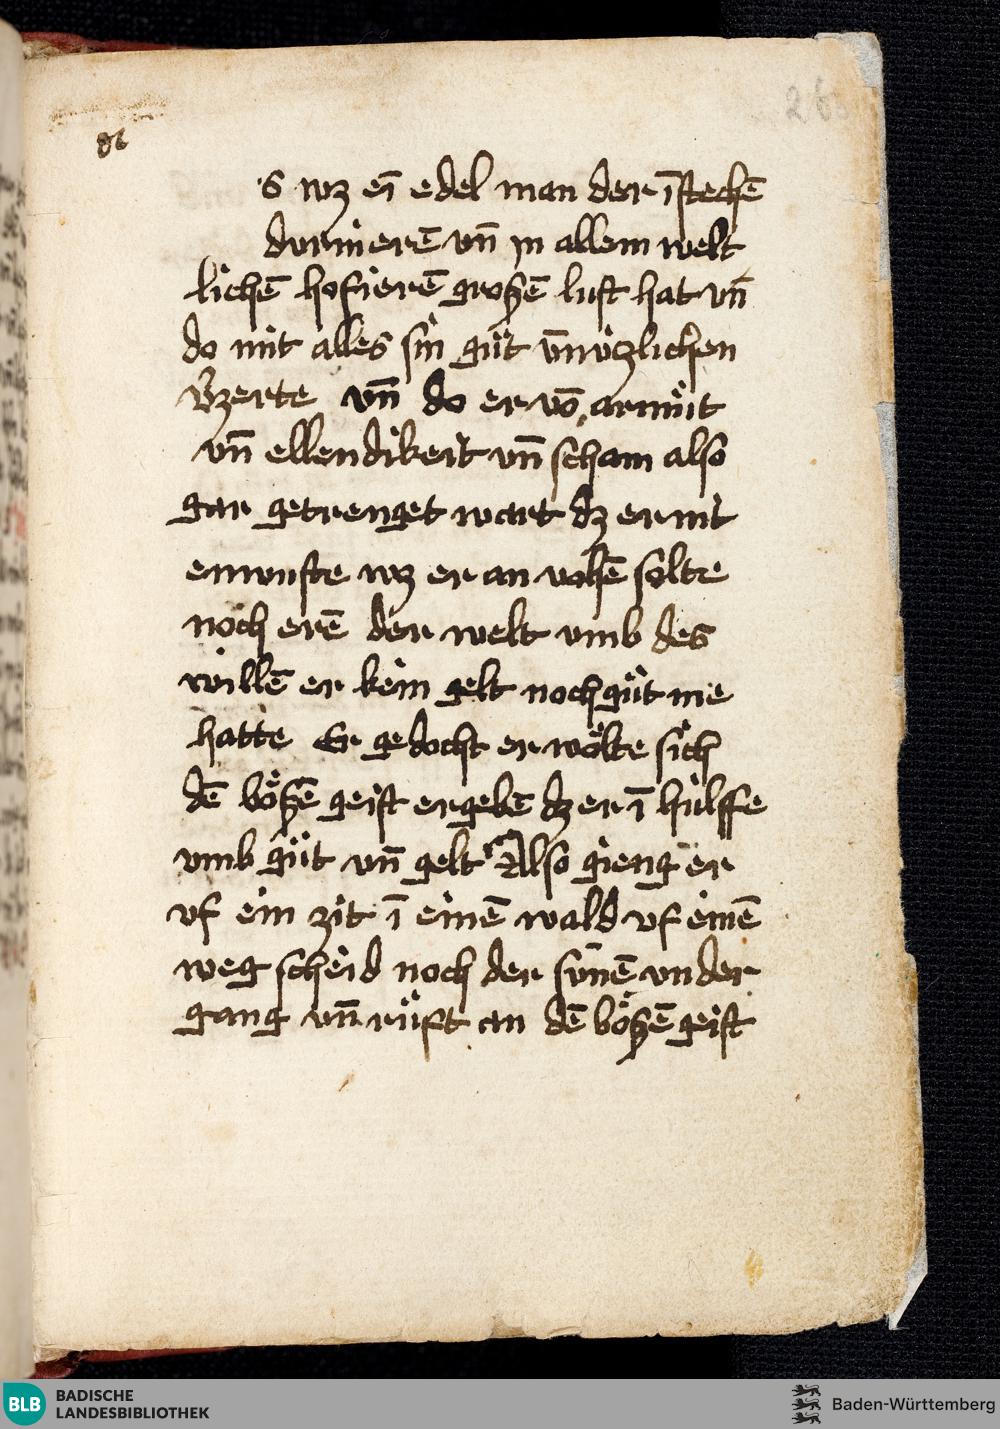 26
s wz eī edel man der ī stechē
durnierē vn̄ jn allem welt
lichē hofierē groſzē luſt hat vn̄
do mit alles ſin gůt vn̄nützlichen
v̈zerte vn̄ do er vō armůt
vn̄ ellendikeit vn̄ scham also
gar getrenget wart dz er nit
enwuſte wz er an vohē ſolte
noch erē der welt vmb des
willē er kein gelt noch gůt me
hatte Er gedocht er wölte ſich
dē böſzē geiſt ergebē dz er ī hülffe
vmb gůt vn̄ gelt Also gieng er
vf ein zit ī einē wald vf einē
weg scheid noch der ſūnē vnder
gang vn̄ rüft an dē böſzē geiſt
BLB BADISCHE
LANDESBIBLIOTHEK
Baden-Württemberg